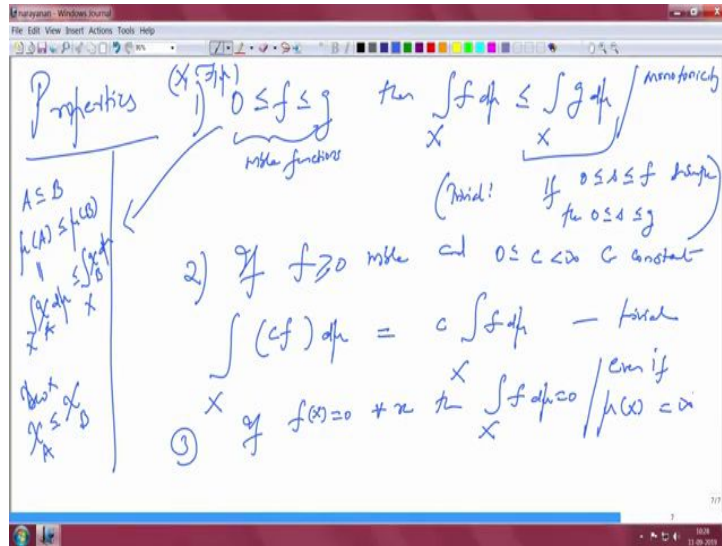 narayanan - Windows Journal
File Edit View Insert Actions Tools Help
Properties
(X, F, μ)
1) 0 ≤ f ≤ g then ∫_X f dμ ≤ ∫_X g dμ
monotonicity
mble functions
(Trivial! If 0 ≤ s ≤ f simple
then 0 ≤ s ≤ g)
A ⊆ B
μ(A) ≤ μ(B)
||
∫_X χ_A dμ ≤ ∫_X χ_B dμ
χ_A ≤ χ_B
2) If f ≥ 0 mble and 0 ≤ c < ∞ constant
∫_X (cf) dμ = c ∫_X f dμ — trivial
3) If f(x)=0 ∀ x then ∫_X f dμ = 0
even if
μ(X) = ∞
7/7
7
10:28
11-09-2019